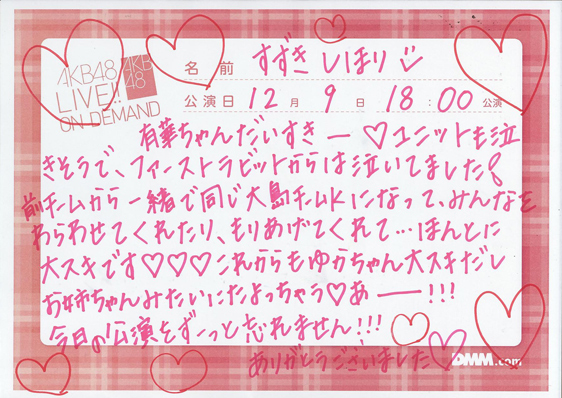 AKB48
LIVE!!
ON DEMAND
AKB
48
名 前 すずき しほり
公演日 12 月 9 日 18:00 公演
有華ちゃんだいすきー♡ユニットも泣
きそうで、ファーストラビットからは泣いてました!
前チームから一緒で同じ大島チームKになって、みんなを
わらわせてくれたり、もりあげてくれて…ほんとに
大スキです♡♡♡これからもゆかちゃん大スキだし
お姉ちゃんみたいにたよっちゃう♡あー!!!
今日の公演をずーっと忘れません!!!
ありがとうございました♡
DMM.com